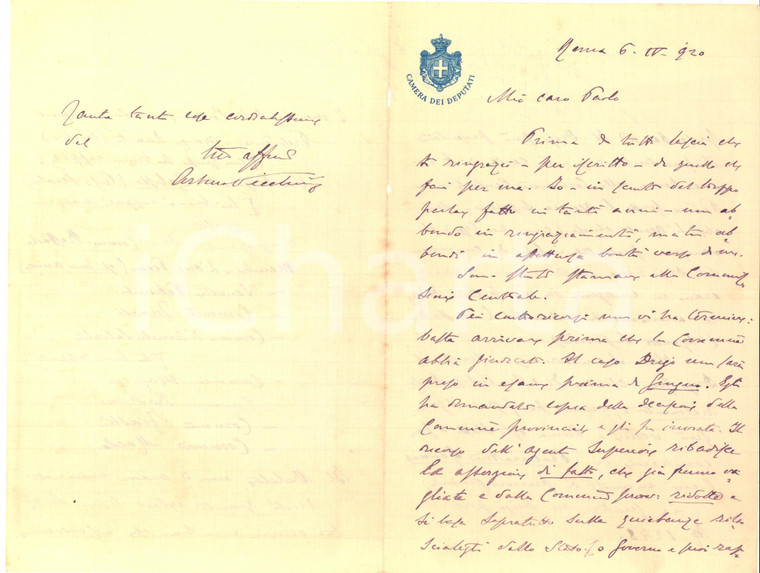 CAMERA DEI DEPUTATI
Roma 6. IV. 920
Mio caro Paolo
Prima di tutto lascia che
ti ringrazi - per iscritto - di quello che
fai per me. Io - in conto del troppo
parlar fatto in tanti anni - non ab
bondo in ringraziamenti, ma tu ab
bondi in affettuosa bontà verso di me.
Sono stato stamane alla Commis
sione Centrale.
Pei controricorsi non vi ha termine:
basta arrivare prima che la Commissione
abbia giudicato. Il caso Drigo non sarà
preso in esame prima di Giugno. Egli
ha domandato copia della decisione della
Commissione provinciale e gli fu inviata. Il
ricorso dell'Agente Superiore ribadisce
di fatto, che già furono va
gliate e dalla Commissione prov. ridotte e
si basa sopratutto sulle quietanze rila
sciategli dallo Governo e suoi rap
Tante tante cose cordialissime
dal
tuo affmo
iCharta